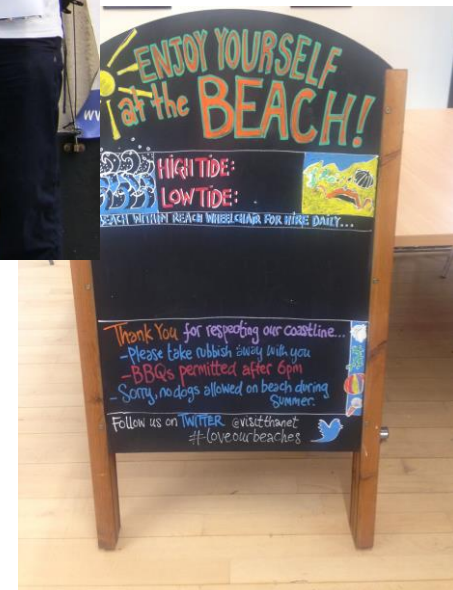 ENJOY YOURSELF
at the BEACH!
HIGH TIDE:
LOW TIDE:
BEACH WITHIN REACH WHEELCHAIR FOR HIRE DAILY...
Thank You for respecting our coastline...
-Please take rubbish away with you
-BBQs permitted after 6pm
-Sorry, no dogs allowed on beach during
Summer.
Follow us on TWITTER @visitthanet
#loveourbeaches